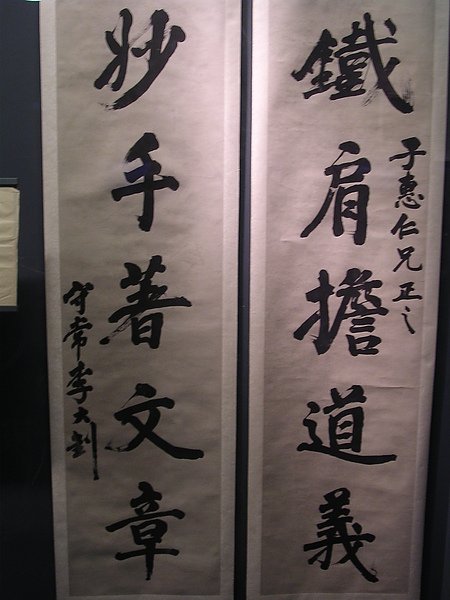 子惠仁兄正之
鐵肩擔道義
妙手著文章
守常李大釗